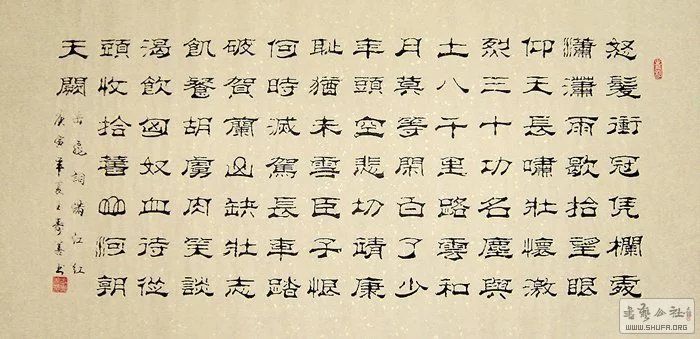 怒髮衝冠凭欄處
瀟瀟雨歇抬望眼
仰天長嘯壯懷激
烈三十功名塵與
土八千里路雲和
月莫等閑白了少
年頭空悲切靖康
恥猶未雪臣子恨
何時滅駕長車踏
破賀蘭山缺壯志
飢餐胡虜肉笑談
渴飲匈奴血待從
頭收拾舊山河朝
天闕
岳飛詞滿江紅
庚寅年夏王書
書藝公社
WWW.SHUFA.ORG